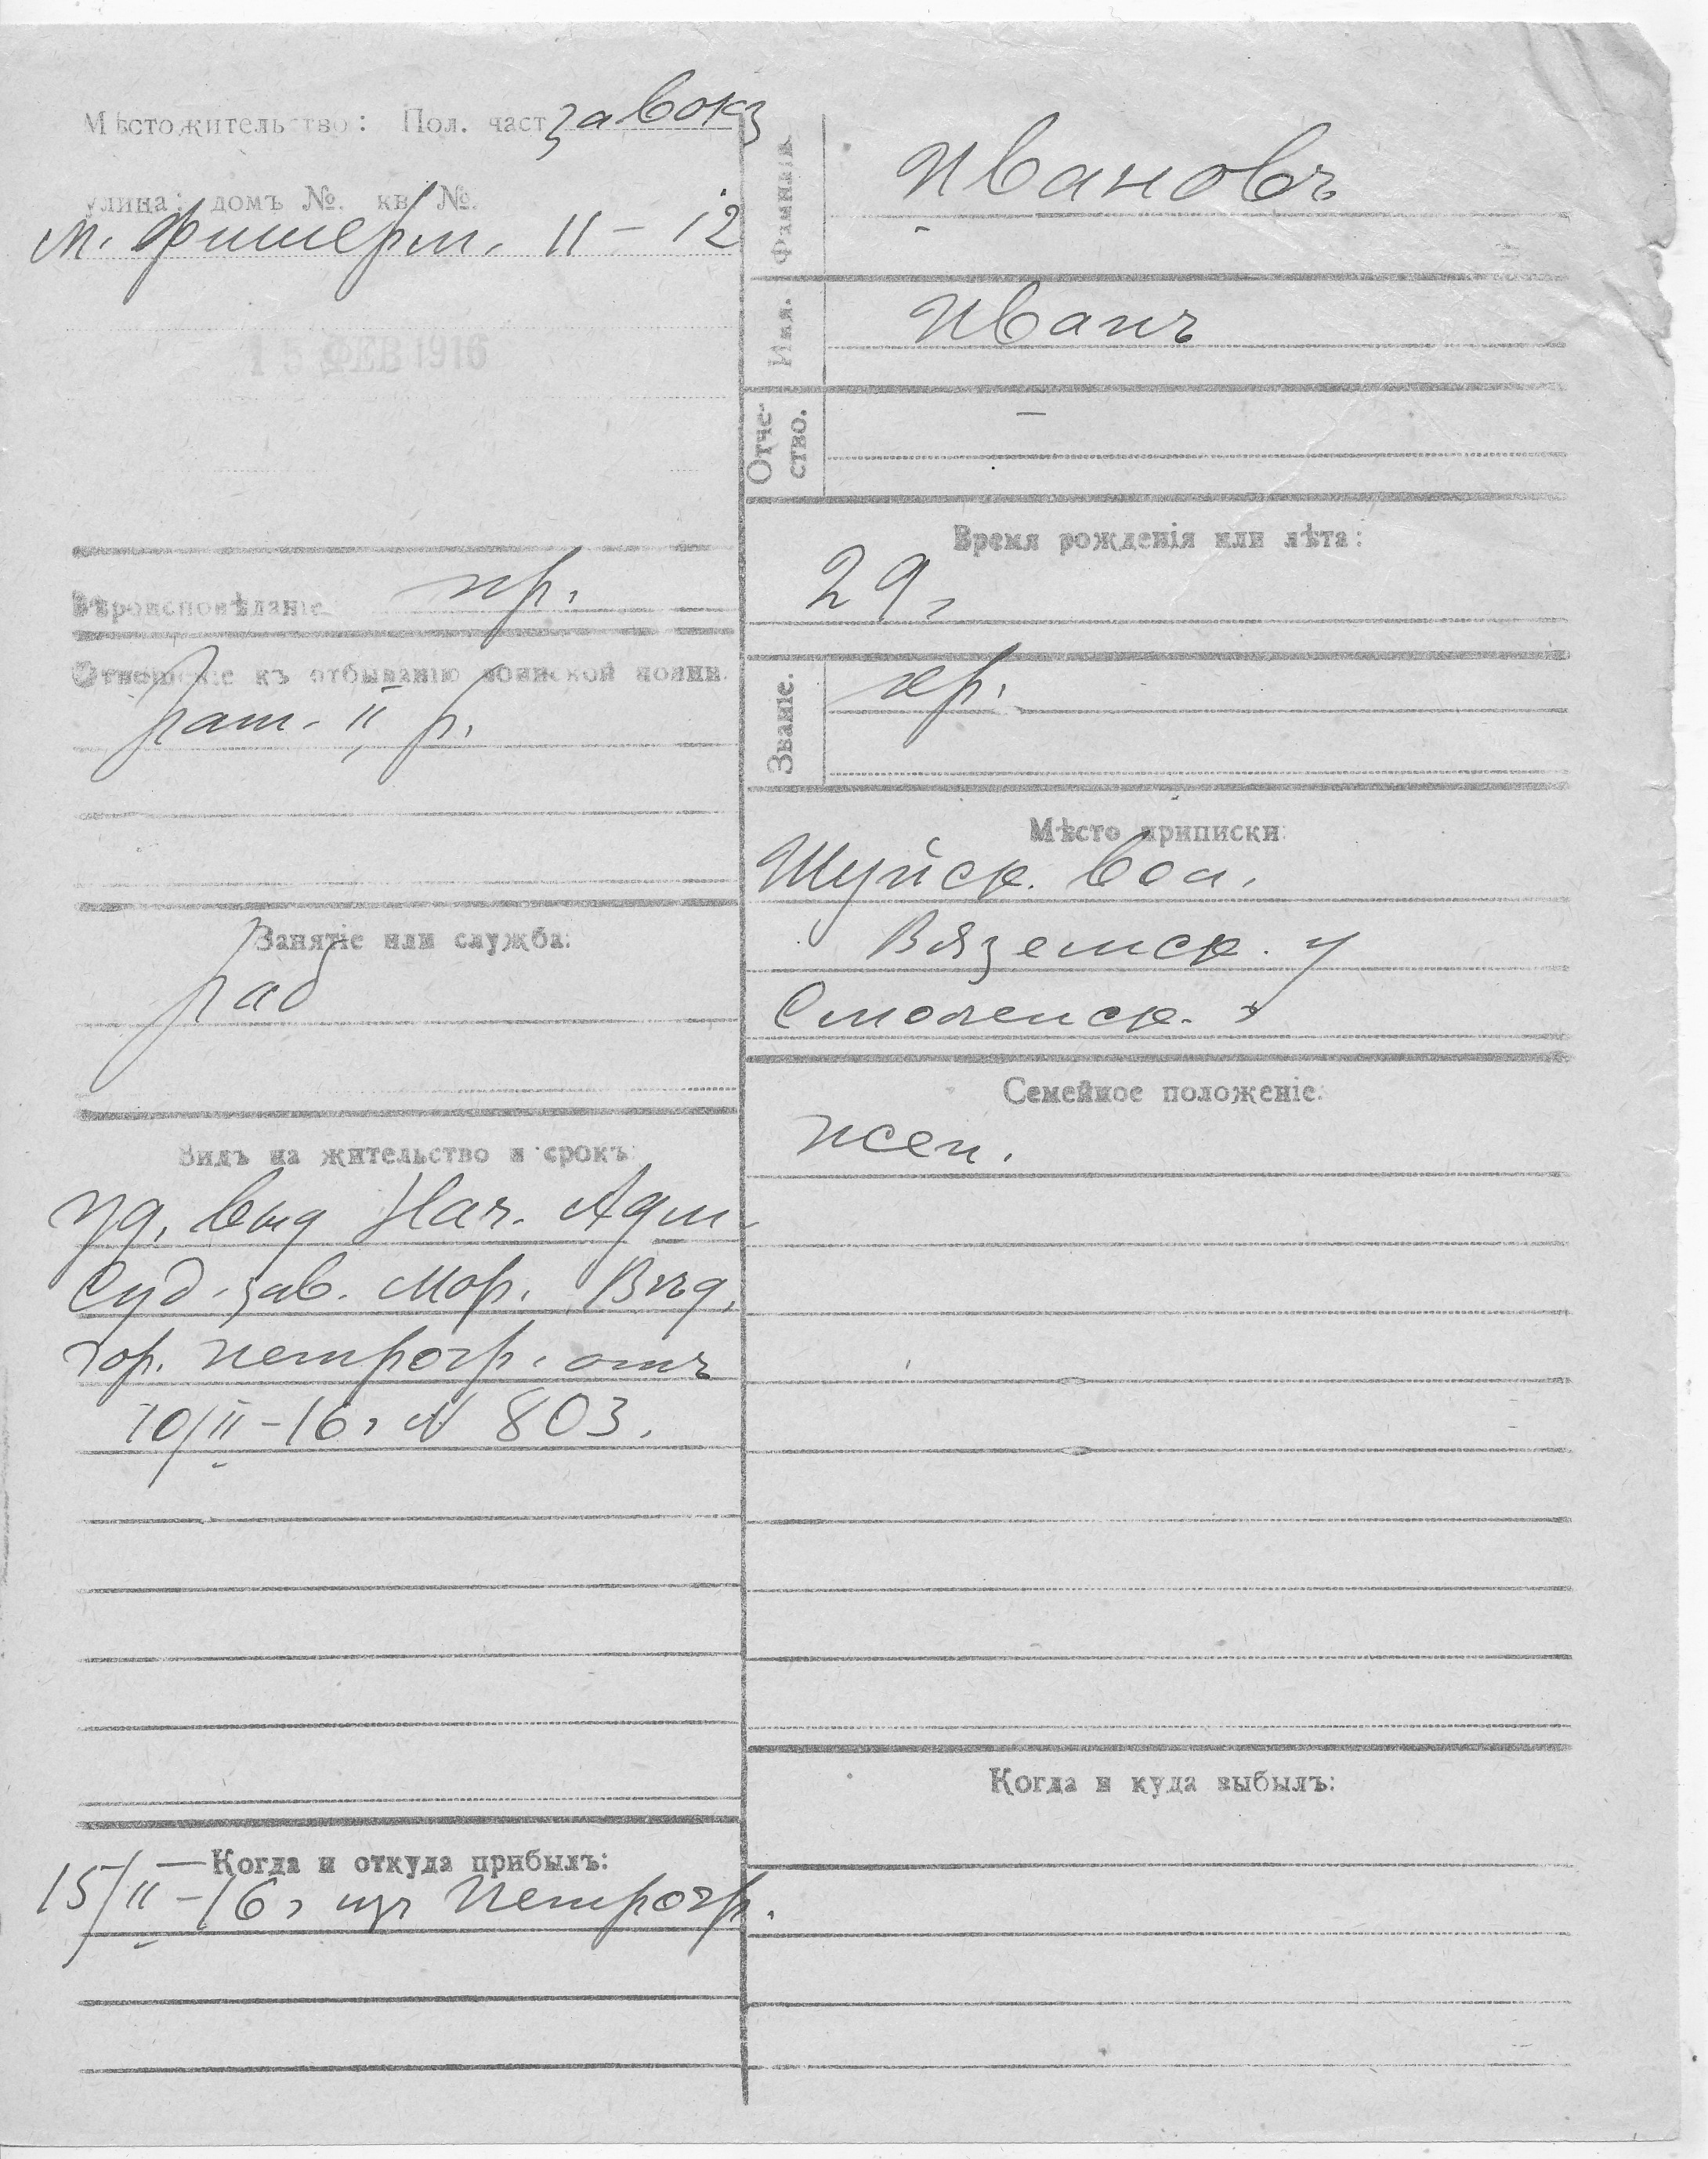 Мѣстожительство: Пол. част завокз
улица: домъ №. кв. №.
м. Фишерм. 11 – 12
15 ФЕВ 1916
Вѣроисповѣданіе пр.
Отношеніе къ отбыванію воинской повин.
рат. II р.
Занятіе или служба:
раб
Видъ на жительство и срокъ:
уд. выд Нач. Адм.
Суд. зав. Мор. Вѣд.
гор. Петрогр. отъ
10/II – 16 г № 803.
Когда и откуда прибылъ:
15/II – 16 г изъ Петрогр.
Фамилія. Ивановъ
Имя. Иванъ
Отче-
ство. –
Время рожденія или лѣта:
29 г
Званіе. кр.
Мѣсто приписки:
Шуйск. вол.
Вяземск. у
Смоленск. г
Семейное положеніе:
жен.
Когда и куда выбылъ: